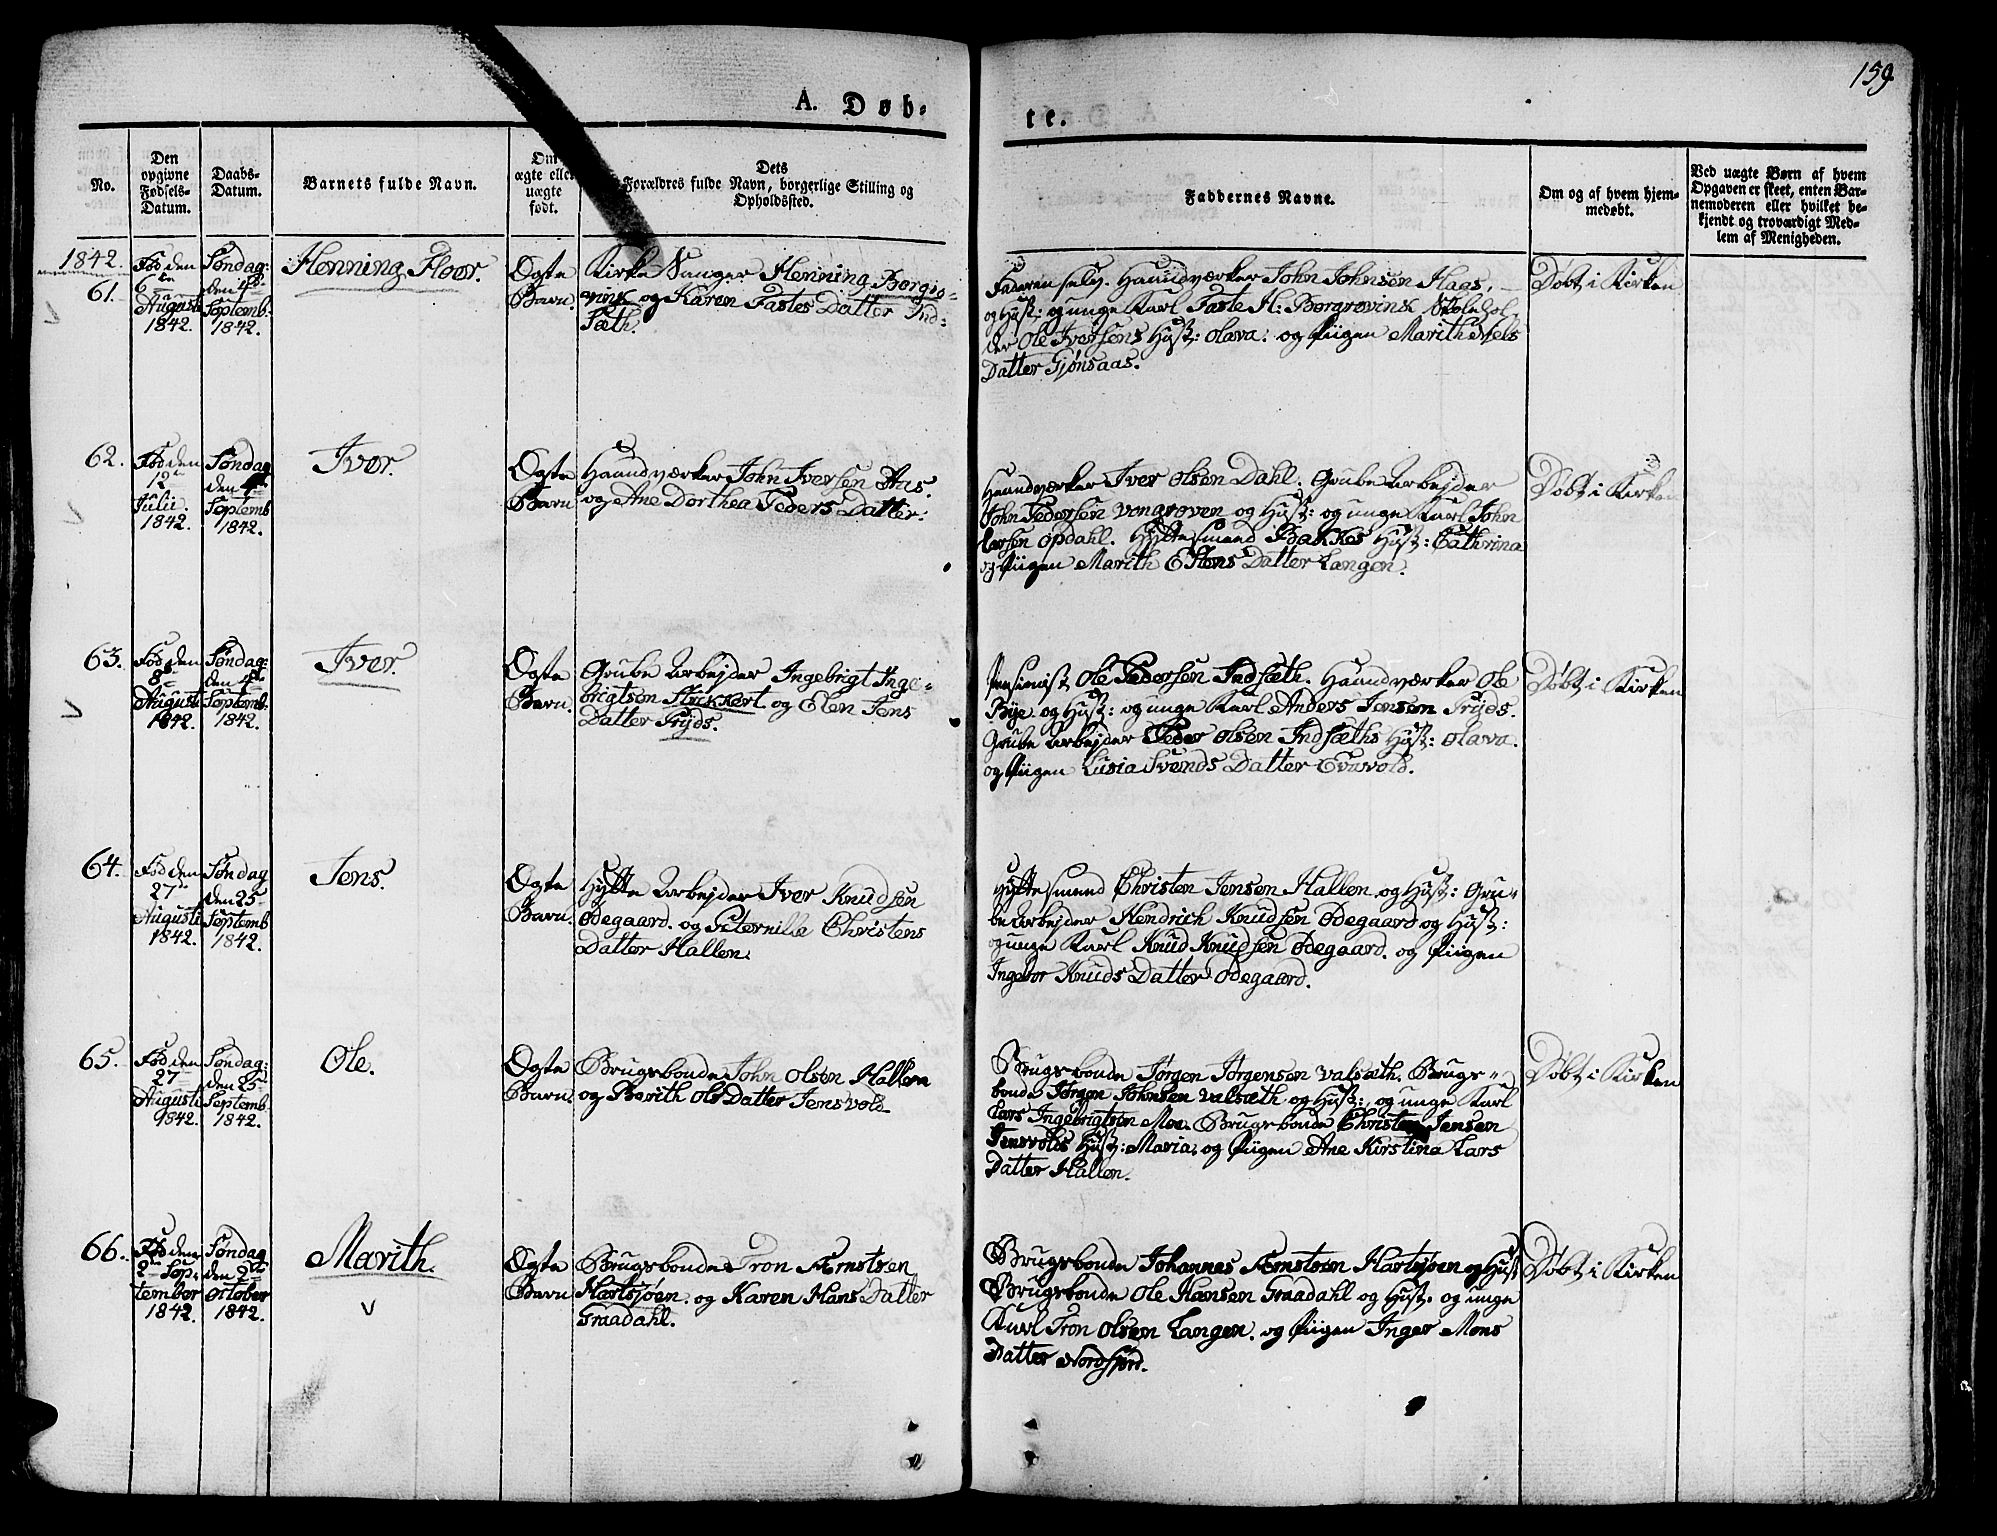 159
A. Døb-
te.
No.
Den opgivne Fødsels-Datum.
Daabs-Datum.
Barnets fulde Navn.
Om ægte eller uægte født.
Dets Forældres fulde Navn, borgerlige Stilling og Opholdssted.
Faddernes Navne.
Om og af hvem hjem-medøbt.
Ved uægte Børn af hvem Opgaven er skeet, enten Bar-nemoderen eller hvilket be-kjendt og troværdigt Med-lem af Menigheden.
1842.
61.
Fød den
6te
Augusti
1842.
Søndag:
den 4de
Septemb.
1842.
Henning Floor.
Ægte
Barn.
Kirke Sanger Henning Borgre-
vink og Karen Fastes Datter Ind-
sæth.
Faderen selv. Haandværker John Johnsen Haas.
og Hust: og unge Karl Faste H: Borgrevink Skolehol-
der Ole Iversens Hust: Olava. og Piigen Marith Nels
Datter Gjønsaas.
Døbt i Kirken
62.
Fød den
12te
Julii.
1842.
Søndag
den 4de
Septemb
1842.
Iver.
Ægte
Barn.
Haandværker John Iversen Aas.
og Ane Dorthea Peders Datter.
Haandværker Iver Olsen Dahl. Grube Arbejder
John Pedersen Vongrøven og Hust: og unge Karl John
Larsen Opdahl. Hyttesmand Bakkes Hust: Cathrina
og Piigen Marith Estens Datter Langen.
Døbt i Kirken
63.
Fød den
8de
Augusti
1842.
Søndag:
den 4de
Septemb.
1842.
Iver.
Ægte
Barn.
Grube Arbejder Ingebrigt Inge-
brigtsen Stickkert og Elen Jens
Datter Fryds.
Pensionist Ole Pedersen Indsæth. Haandværker Ole
Bye. og Hust: og unge Karl Anders Jensen Fryds.
Grube Arbejder Peder Olsen Indsæths Hust: Olava.
og Piigen Lusia Svends Datter Evavold.
Døbt i Kirken
64.
Fød den
27de
Augusti
1842.
Søndag
den 25
Septemb
1842.
Jens.
Ægte
Barn.
Hytte Arbejder Iver Knudsen
Ødegaard. og Peternilla Christens
Datter Hallen.
Hyttesmand Christen Jensen Hallen. og Hust: Gru-
be Arbejder Hendrich Knudsen Ødegaard og Hust:
og unge Karl Knud Knudsen Ødegaard. og Piigen
Ingebor Knuds Datter Ødegaard.
65.
Fød den
27
Augusti
1842.
Søndag:
den 25
Septemb.
1842.
Ole.
Ægte
Barn.
Brugsbonde John Olsen Hallen
og Berith Ols Datter Jensvold
Brugsbonde Jørgen Jørgensen Valsæth. Brugs-
bonde Jørgen Johnsen Valsæth og Hust: og unge Karl
Lars Ingebrigtsen Moe. Brugsbonde Christen Jensen
Jensvolds Hust: Maria. og Piigen Ane Kirstina Lars
Datter Hallen.
Døbt i Kirken
66.
Fød den
2den Sep-
tember
1842.
Søndag
den 2de
October
1842.
Marith.
Ægte
Barn
Brugsbonde Tron Arntsen
Hartsjøen. og Karen Hans Datter
Graadahl.
Brugsbonde Johannes Arntsen Hartsjøen og Hust
Brugsbonde Ole Hansen Graadahl og Hust. og unge
Karl Tron Olsen Langen. og Piigen Inger Mons
Datter Nordfjørd.
Døbt i Kirken